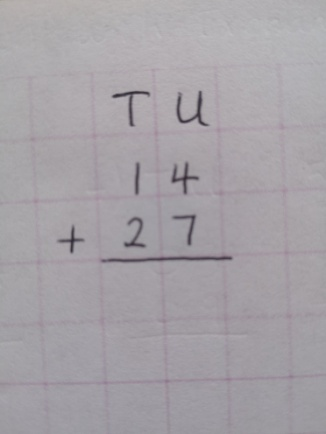 T U
1 4
+ 2 7